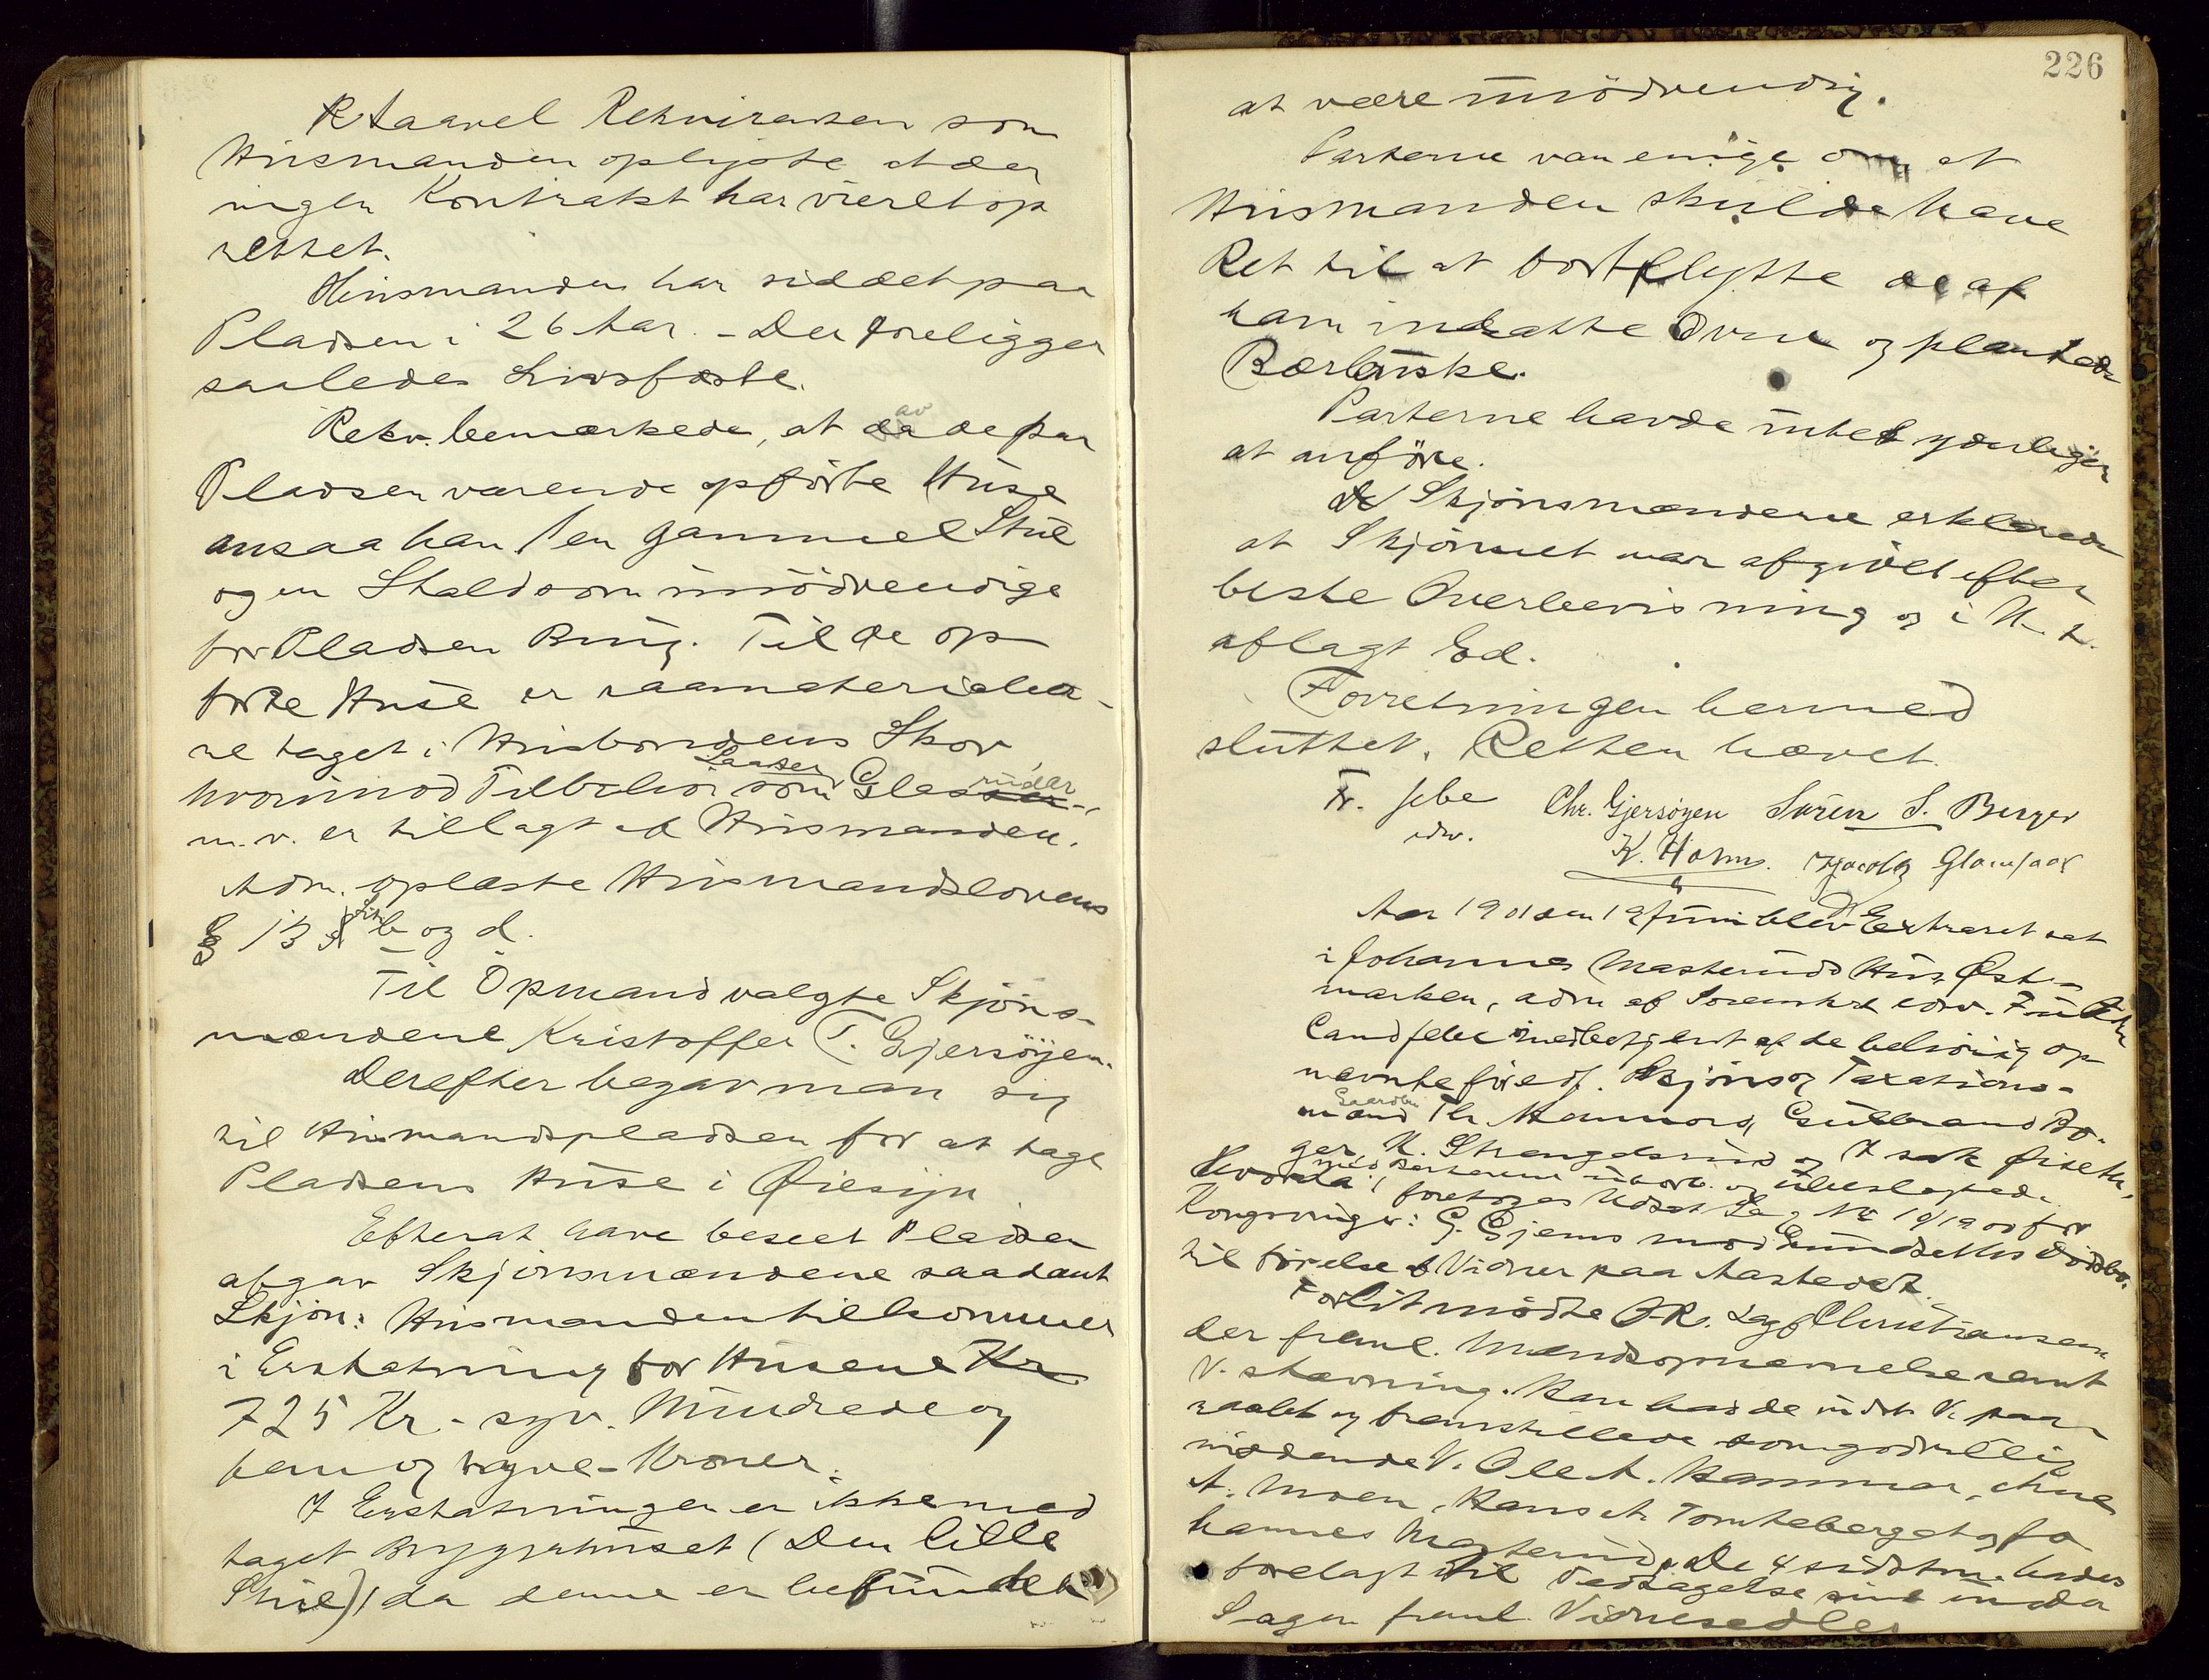 Saavel Rekvirenten som
Husmanden oplyste at der
ingen Kontrakt har vieret op
rettet.
Husmanden har siddet paa
Pladsen i 26 Aar. - Der foreligger
saaledes Livsfæste.
Rekv. bemærkede, at av de paa
Pladsen værende opførte Huse
ansaa han 1 en gammel Stue
og en Stald som unödvendige
for Pladsen Brug. Til de op
førte Huse er raamateriale
ne taget i Husbondens Skov,
hvorimod Tilbehør som Laaser Glasruder
m. v. er tillagt af Husmanden.
Adm. oplæste Husmandslovens
§ 13 Lit b og d.
Til Opmand valgte Skjöns-
mændene Kristoffer T. Gjersöyen.
Derefter begav man sig
til Husmandspladsen for at tage
Pladsens Huse i Øiesyn.
Efter at have beseet Pladsen
afgav Skjönsmændene saadant
Skjön: Husmanden tilkommer
i Erstatning for Husene Kr
725 Kr - syv Hundrede og
fem og tyve - Kroner.
I Erstatningen er ikke med
taget Bryggerhuset (Den lille
Stue), da denne er befundet
226
at være unödvendig.
Parterne var enige om at
Husmanden skulde have
Ret til at bortflytte de af
ham indsatte Ovne og plantede
Bærbuske.
Parterne havde intet yderligere
at anföre.
Skjönsmændene erklærede
at Skjönnet var afgivet efter
beste Overbevisning og i H. t.
aflagt Ed.
Forretningen hermed
sluttet. Retten hævet.
Fr. Sebe Chr. Gjersøyen Søren S. Berger
edsv. K. Holm. Jacob Glomsaas
Aar 1901 den 19 Juni blev Extraret sat
i Johannes Masterud's Hus, Øst-
marken, adm af Sorenskr edsv. Fuldm
Cand Sebe medbetjent af de behörig op
nævnte före df. Skjöns og Taxations-
mænd Gaardbr Th. Hammers, Gulbrand Bø-
ger, K. Strengelsrud og Isak Øiseth,
foretoges Udsat Sag No 10/1900 for
Kongsvinger: G. Gjems mod Gundsethes Dödsbo.
til förelse af Vidner paa Aastedet.
For Cit mödte O. R. Sagf Christiansen
der freml. Mandsopnævnelse samt
V. stævning. Han havde indst. V. paa-
raabt og fremstillede som godvillig
mödende V. Ole A. Hammer,
A. Moen, Hans A. Tomteberget og Jo
hannes Masterud. De 4 sidstn. havdes
forelagt til Vedtagelse
Sagen freml. Vidnesedler